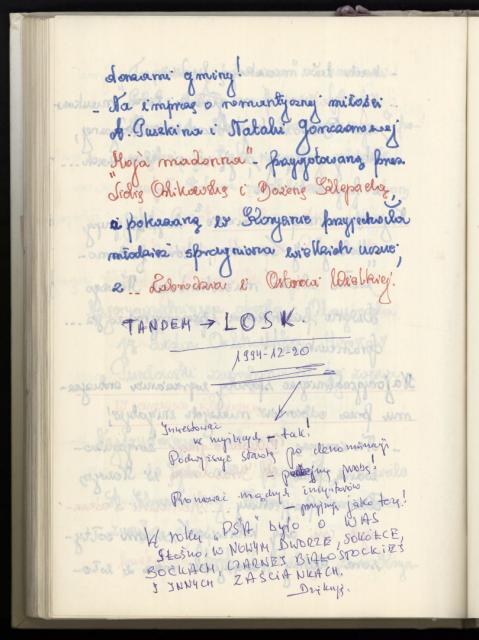 dowami gminy!
- Na imprezę o romantycznej miłości
A. Puszkina i Natalii Gonczarowej
"Moja madonna" - przygotowaną przez
Lidię Osikowską i Bożenę Szlepadą,
i pokazaną w Korycinie przyjechała
młodzież spragniona wielkich uczuć,
z... Zabrodzia i Ostrowi Wielkiej.
TANDEM → LOSK.
1994-12-20
Inwestować
w myślących - tak!
Podwyższyć stawkę po denominacji
- podejmę próbę!
Promować mądrych
- przyjmuję jako tezę!
W ROKU "PSA" BYŁO O WAS
GŁOŚNO, W NOWYM DWORZE, SOKÓŁCE,
BOĆKACH, CZARNEJ BIAŁOSTOCKIEJ
I INNYCH ZAŚCIANKACH.
Dziękuję.